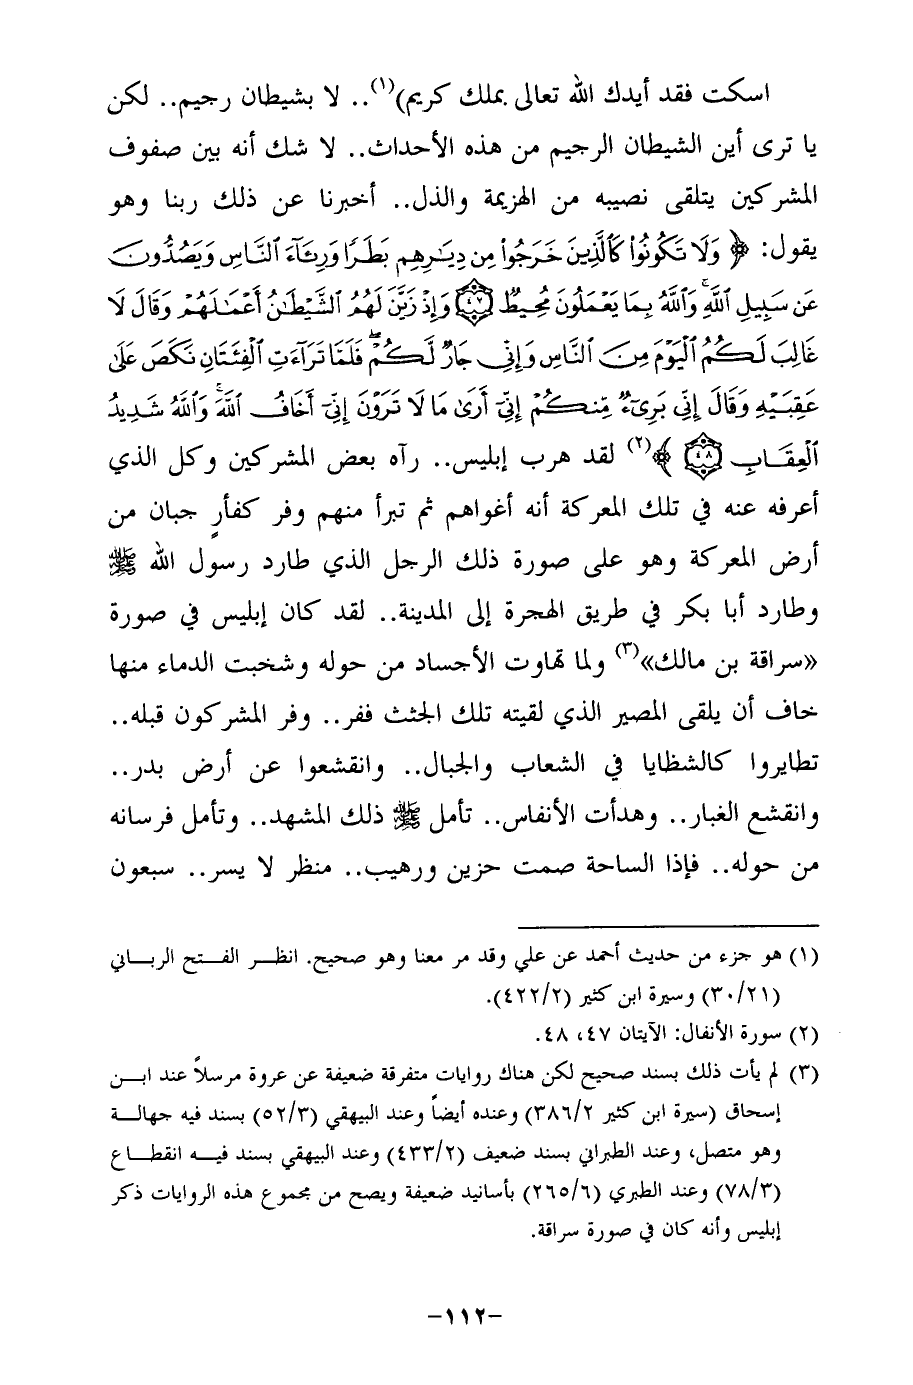 اسكت فقد أيدك الله تعالى بملك كريم)(١).. لا بشيطان رجيم.. لكن
يا ترى أين الشيطان الرجيم من هذه الأحداث.. لا شك أنه بين صفوف
المشركين يتلقى نصيبه من الهزيمة والذل.. أخبرنا عن ذلك ربنا وهو
يقول: ﴿ وَلَا تَكُونُوا۟ كَٱلَّذِينَ خَرَجُوا۟ مِن دِيَـٰرِهِم بَطَرًا وَرِئَآءَ ٱلنَّاسِ وَيَصُدُّونَ
عَن سَبِيلِ ٱللَّهِ ۚ وَٱللَّهُ بِمَا يَعْمَلُونَ مُحِيطٌ ٤٧ وَإِذْ زَيَّنَ لَهُمُ ٱلشَّيْطَـٰنُ أَعْمَـٰلَهُمْ وَقَالَ لَا
غَالِبَ لَكُمُ ٱلْيَوْمَ مِنَ ٱلنَّاسِ وَإِنِّى جَارٌ لَّكُمْ ۖ فَلَمَّا تَرَآءَتِ ٱلْفِئَتَانِ نَكَصَ عَلَىٰ
عَقِبَيْهِ وَقَالَ إِنِّى بَرِىٓءٌ مِّنكُمْ إِنِّىٓ أَرَىٰ مَا لَا تَرَوْنَ إِنِّىٓ أَخَافُ ٱللَّهَ ۚ وَٱللَّهُ شَدِيدُ
ٱلْعِقَابِ ٤٨ ﴾(٢) لقد هرب إبليس.. رآه بعض المشركين وكل الذي
أعرفه عنه في تلك المعركة أنه أغواهم ثم تبرأ منهم وفر كفأرٍ جبان من
أرض المعركة وهو على صورة ذلك الرجل الذي طارد رسول الله ﷺ
وطارد أبا بكر في طريق الهجرة إلى المدينة.. لقد كان إبليس في صورة
«سراقة بن مالك»(٣) ولما تهاوت الأجساد من حوله وشخبت الدماء منها
خاف أن يلقى المصير الذي لقيته تلك الجثث ففر.. وفر المشركون قبله..
تطايروا كالشظايا في الشعاب والجبال.. وانقشعوا عن أرض بدر..
وانقشع الغبار.. وهدأت الأنفاس.. تأمل ﷺ ذلك المشهد.. وتأمل فرسانه
من حوله.. فإذا الساحة صمت حزين ورهيب.. منظر لا يسر.. سبعون
(١) هو جزء من حديث أحمد عن علي وقد مر معنا وهو صحيح. انظـر الفـتح الربـاني
(٣٠/٢١) وسيرة ابن كثير (٤٢٢/٢).
(٢) سورة الأنفال: الآيتان ٤٧، ٤٨.
(٣) لم يأت ذلك بسند صحيح لكن هناك روايات متفرقة ضعيفة عن عروة مرسلاً عند ابـن
إسحاق (سيرة ابن كثير ٣٨٦/٢) وعنده أيضاً وعند البيهقي (٥٢/٣) بسند فيه جهالـة
وهو متصل، وعند الطبراني بسند ضعيف (٤٣٣/٢) وعند البيهقي بسند فيـه انقطـاع
(٧٨/٣) وعند الطبري (٢٦٥/٦) بأسانيد ضعيفة ويصح من مجموع هذه الروايات ذكر
إبليس وأنه كان في صورة سراقة.
-١١٢-